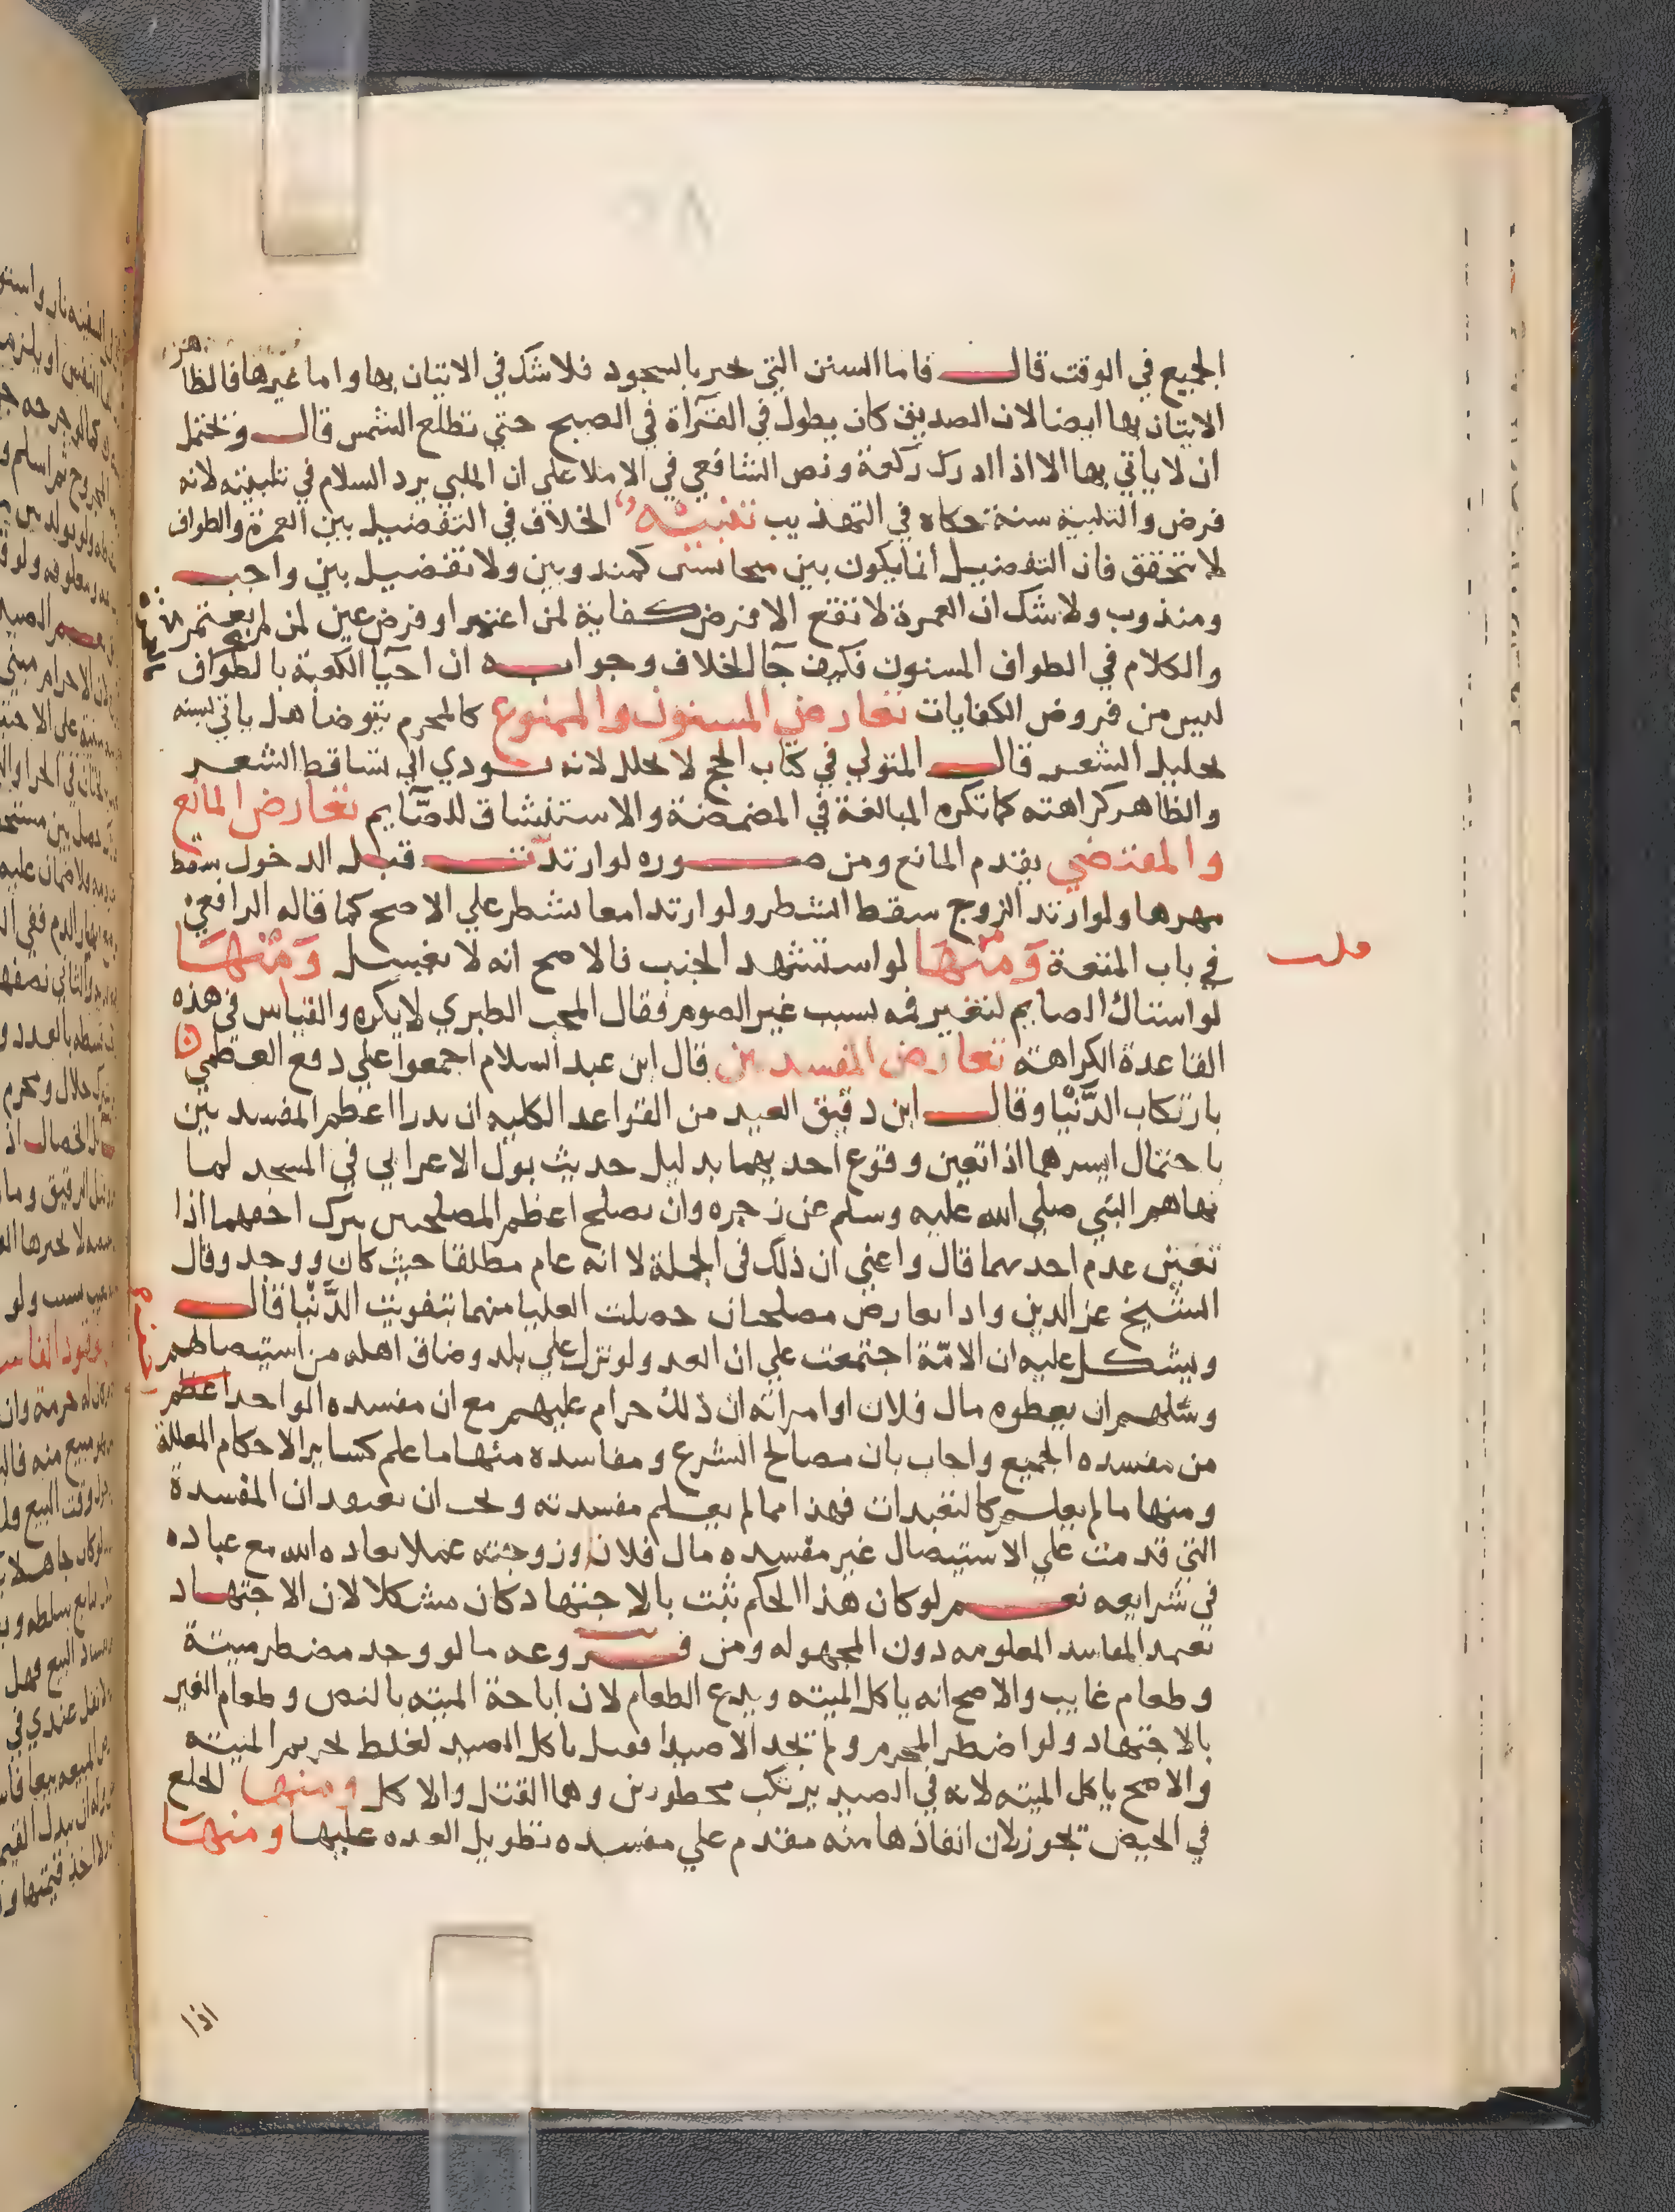 الجميع في الوقت قال فاما السنن التي تجبر بالسجود فلا شك في الاتيان بها واما غيرها فالظاهر
الاتيان بها ايضا لان الصديق كان يطول في القرآة في الصبح حتي تطلع الشمس قال ويحتمل
ان لا ياتي بها الا اذا ادرك ركعة ونص الشافعي في الاملا علي ان الملبي يرد السلام في تلبيته لانه
فرض والتلبية سنة حكاه في التهذيب تنبيه الخلاف في التفضيل بين العمرة والطواف
لا يتحقق فان التفضيل انما يكون بين متجانسين كمندوبين ولا تفضيل بين واجب
ومندوب ولا شك ان العمرة لا تقع الا فرض كفاية لمن اعتمر او فرض عين لمن لم يعتمر
والكلام في الطواف المسنون فكيف جآ الخلاف وجوابه ان احيآ الكعبة بالطواف
ليس من فروض الكفايات تعارض المسنون والممنوع كالمحرم يتوضا هل ياتي بسنه
تخليل الشعر قال المتولي في كتاب الحج لا يخلل لانه يودي الي تساقط الشعر
والظاهر كراهته كما تكره المبالغة في المضمضة والاستنشاق للصايم تعارض المانع
والمقتضي يقدم المانع ومن صوره لو ارتدت قبل الدخول سقط
مهرها ولو ارتد الزوج سقط الشطر ولو ارتدا معا يشطر علي الاصح كما قاله الرافعي
في باب المتعة ومنها لو استشهد الجنب فالاصح انه لا يغسل ومنها
لو استاك الصايم لتغير فمه بسبب غير الصوم فقال المحب الطبري لا يكره والقياس في هذه
القاعدة الكراهة تعارض المفسدتين قال ابن عبد السلام اجمعوا علي دفع العظمي
بارتكاب الدنيا وقال ابن دقيق العيد من القواعد الكليه ان يدرا اعظم المفسدتين
باحتمال ايسرهما اذا تعين وقوع احديهما بدليل حديث بول الاعرابي في المسجد لما
نهاهم النبي صلي الله عليه وسلم عن زجره وان يصلح اعظم المصلحتين بترك اخفهما اذا
تعين عدم احديهما قال واعني ان ذلك في الجملة لا انه عام مطلقا حيث كان ووجد وقال
الشيخ عز الدين واذا تعارض مصلحتان حصلت العليا منهما بتفويت الدنيا قال
ويشكل عليه ان الامة اجتمعت علي ان العدو لو نزل علي بلد وضاق اهله من استيصالهم
وسلهم ان يعطوه مال فلان او امراته ان ذلك حرام عليهم مع ان مفسده الواحد اعظم
من مفسده الجميع واجاب بان مصالح الشرع ومفاسده منها ما علم كساير الاحكام المعللة
ومنها ما لم يعلم كالتعبدات فهذا مما لم يعلم مفسدته ويجب ان نعتقد ان المفسدة
التي قدمت علي الاستيصال غير مفسده مال فلان وزوجته عملا بعاده الله مع عباده
في شرايعه نعم لو كان هذا الحكم ثبت بالاجتهاد كان مشكلا لان الاجتهاد
تعتمد المفاسد المعلومه دون المجهوله ومن فروعه ما لو وجد مضطر ميتة
وطعام غايب والاصح انه ياكل الميته ويدع الطعام لان اباحة الميته بالنص وطعام الغير
بالاجتهاد ولو اضطر المحرم ولم يجد الا صيدا فقيل ياكل الصيد لغلظ تحريم الميته
والاصح ياكل الميته لانه في الصيد يرتكب محظورين وهما القتل والاكل ومنها الخلع
في الحيض تجوز لان انقاذها منه مقدم علي مفسده تطويل العده عليها ومنها
اذا